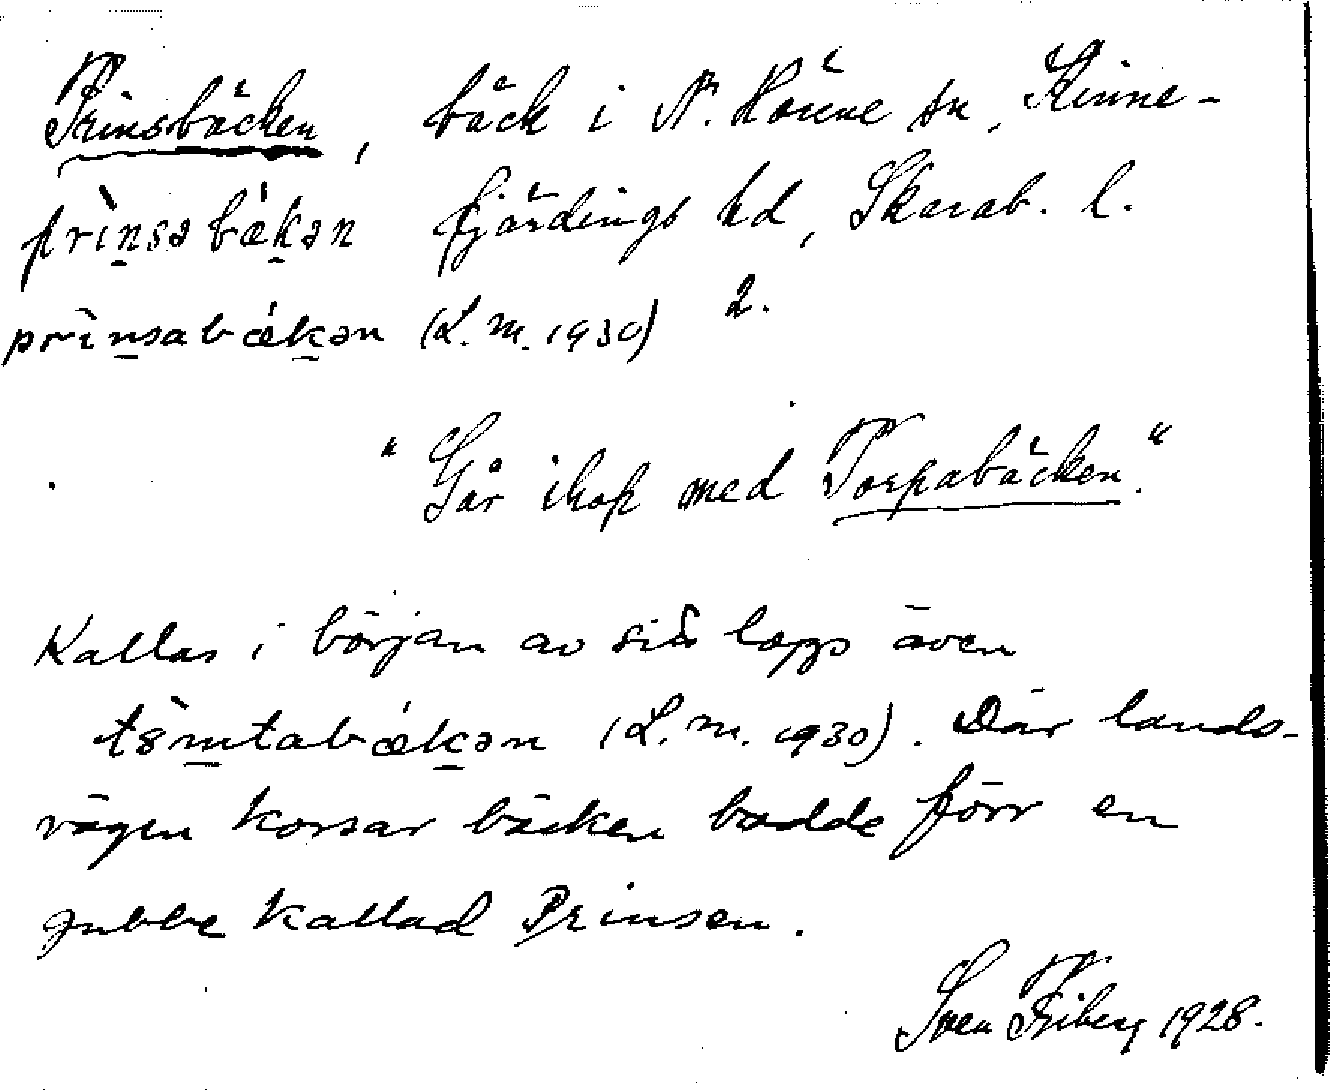 Prinsbäcken, bäck i N. Härene sn, Kinne-
prìnsəbǽkən fjärdings hd, Skarab. l.
prìnsabǽkən (L.m. 1930) 2.
"Går ihop med Torpabäcken."
Kallas i början av sitt lopp även
tömtabǽkən (L.m. 1930). Där lands-
vägen korsar bäcken bodde förr en
gubbe kallad Prinsen.
Sven Friberg 1928.